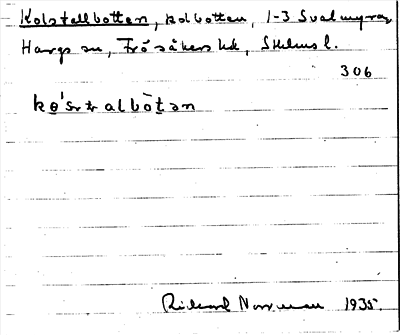 Kolstallbotten, kolbotten, 1-3 Svalmyran
Hargs sn, Frösåkers hd, Sthlms l.
306
kǫ'sṭalbòtən
Rickard Norrman 1935.